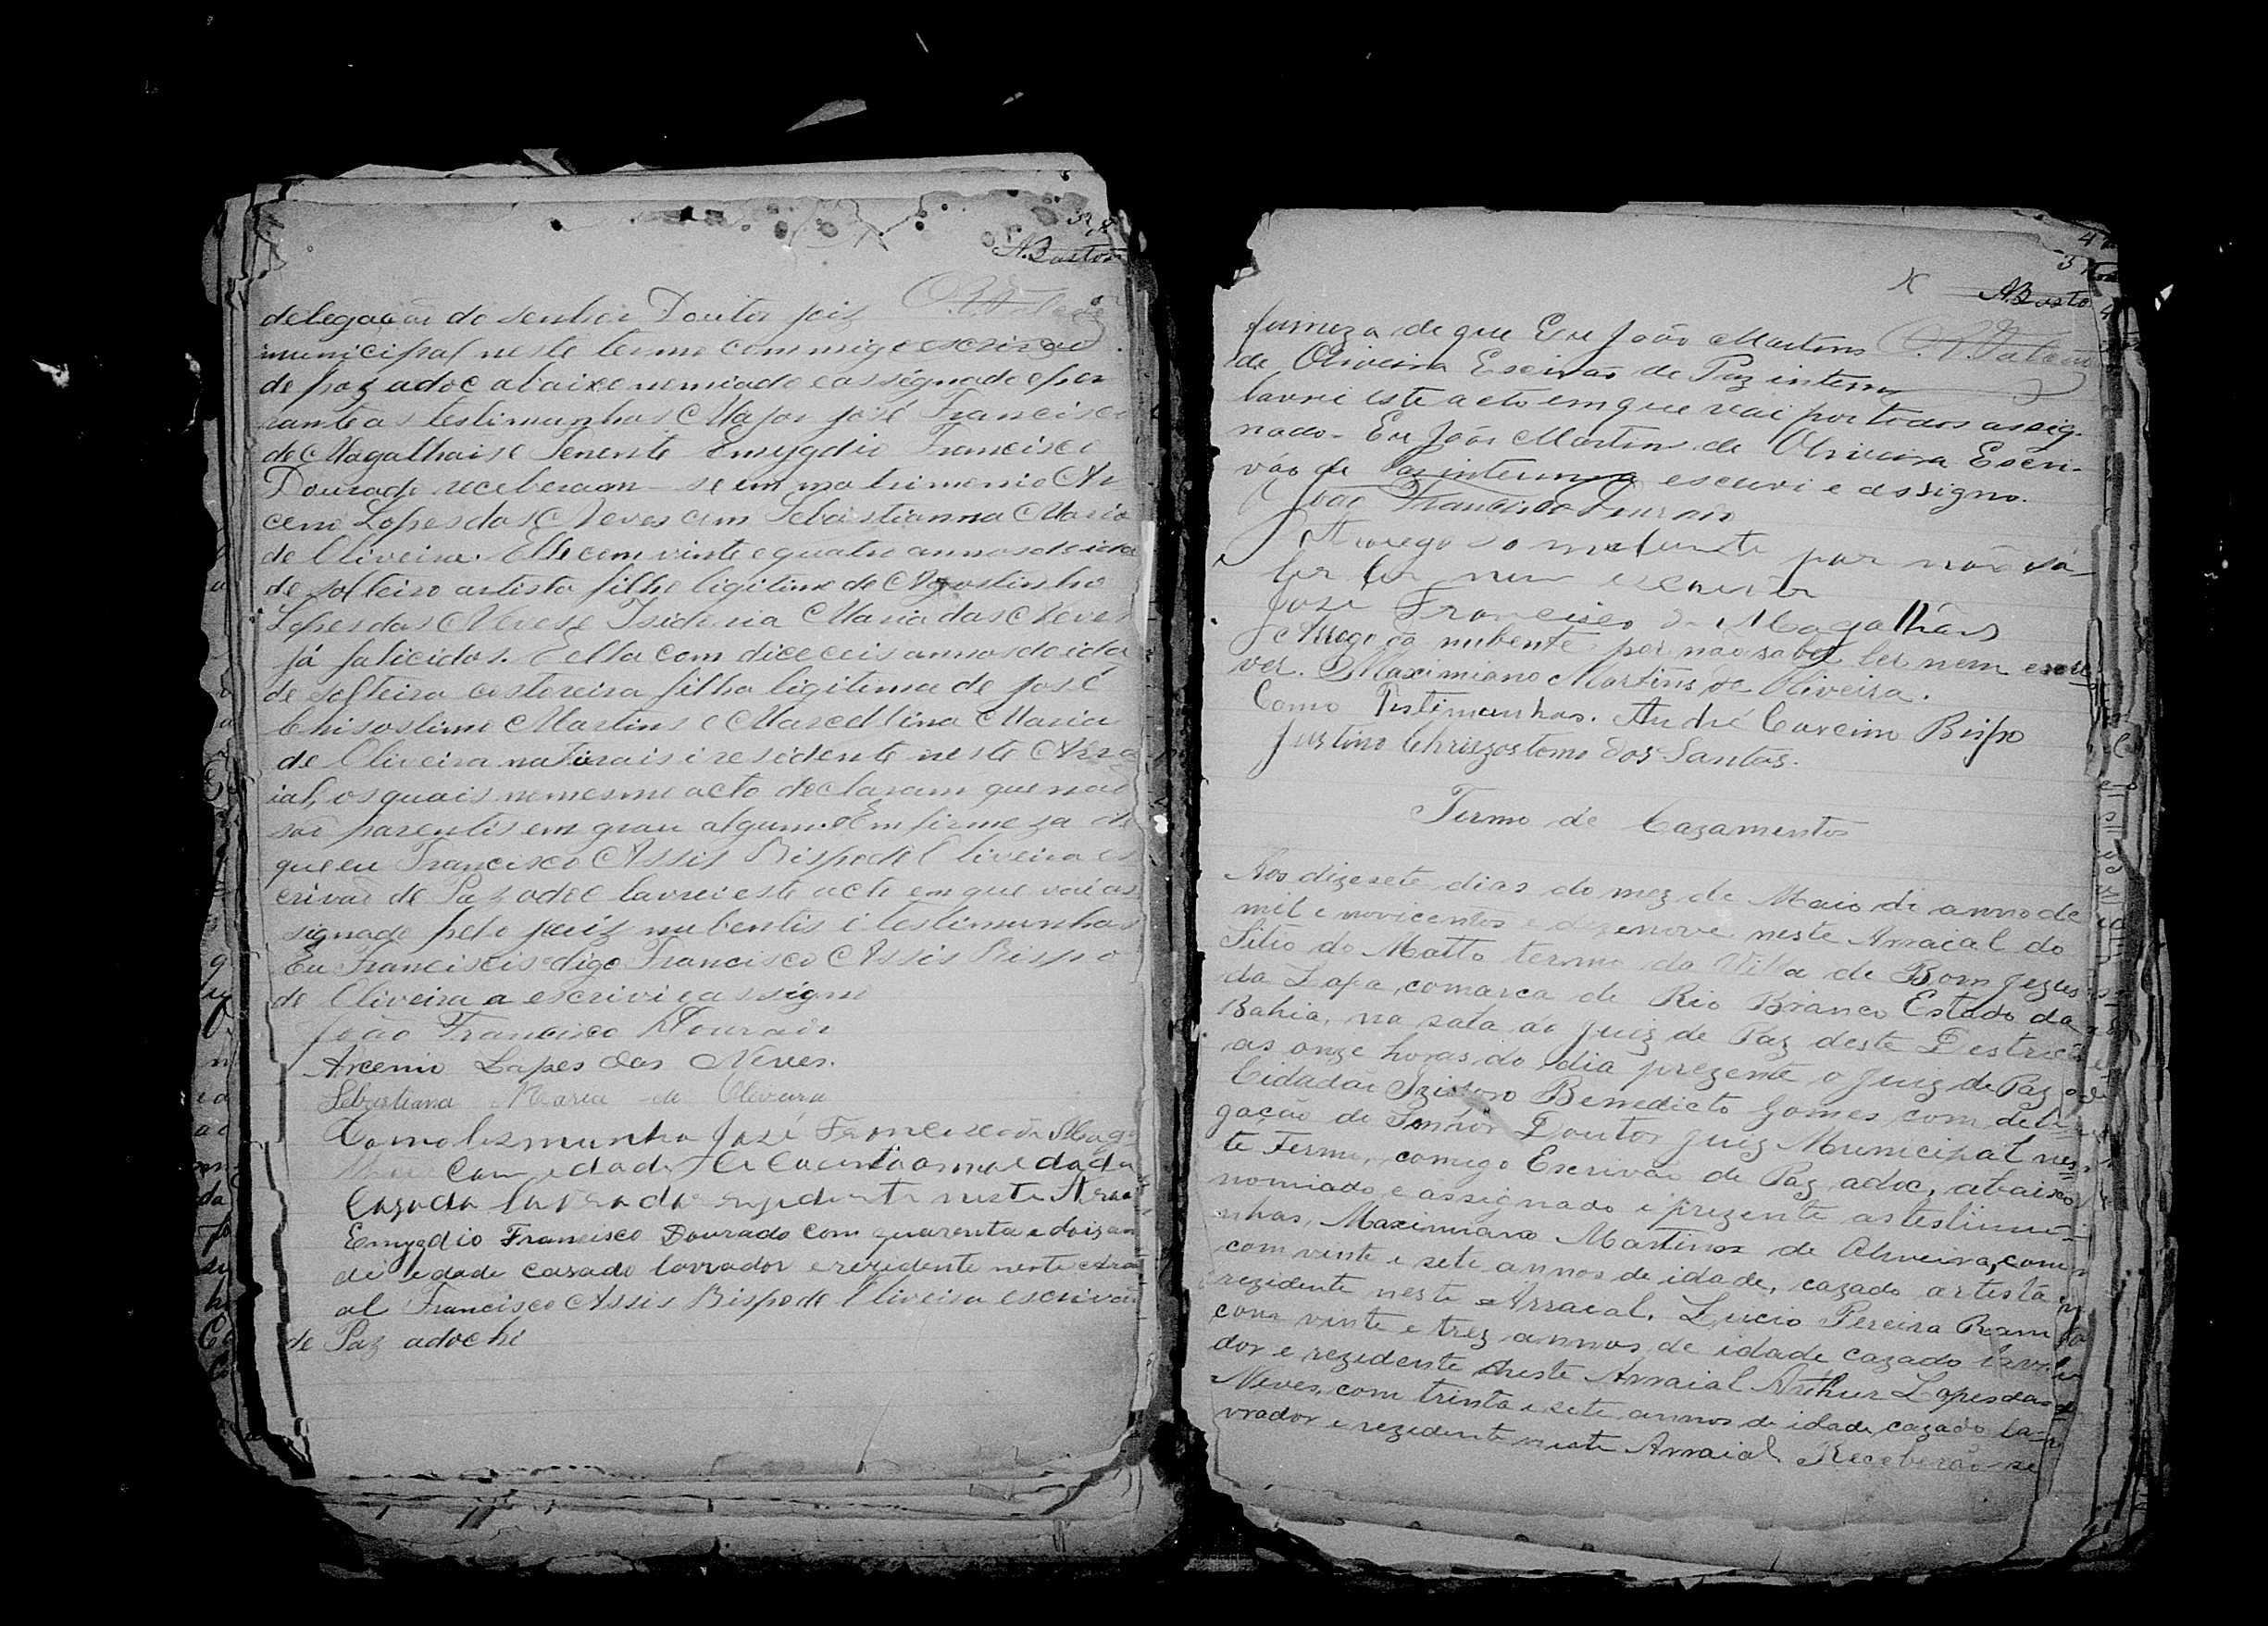 N. Bastos
delegação do senhor Doutor juiz
municipal neste termo commigo escrivão
de paz adoc abaixo nomiado e assignado e per
rante as testimunhas Major José Francisco
de Magalhais e Tenente Emygdio Francisco
Dourado receberaom se em matrimonio Ar
cenio Lopes das Neves com Sebastianna Maria
de Oliveira. Elle com vinte e quatro annos de ida
de solteiro artista filho ligitimo de Agostinho
Lopes das Neves e Isidoria Maria das Neves
já falicidos. E ella com diceceis annos de ida
de solteira costoreira filha ligitima de José
Chisostimo Martins e Marcellina Maria
de Oliveira naturais i residente neste Arra
ial, os quais no mesmo acto declaram que não
são parentis em grau algum. Em firmeza de
que eu Francisco Assis Bispo de Oliveira es
crivão de Paz adoc lavrei este acto em que vai as
signado pelo juiz nubentis i testimunhas
Eu Franciscis digo Francisco Assis Bispo
de Oliveira a escrivi e assigno
João Francisco Dourado
Arcenio Lopes das Neves.
Sebastiana Maria de Oliveira
Como tesmunha José Francisco de Mag
com edade
Cazado lavrador rezidente neste Arra
Emygdio Francisco Dourado com quarenta e doiz an
de edade casado lavrador e rezidente neste Arra
al Francisco Assis Bispo de Oliveira escrivão
de Paz adoc hi
A. Basto
firmeza de que Eu João Martins
de Oliveira Escivão de Paz interino
lavrei este acto em que vai por todos assig-
nado. Eu João Martins de Oliveira Escri-
vão de Paz interino escrivi e assigno.
João Francisco Dourado
A rogo do nubente por não sa-
ber ler nem escrever
José Francisco de Magalhães
A rogo da nubente por não saber ler nem escre-
ver. Maximiano Martins de Oliveira.
Como Testimunhas. André Bispo
Justino Chrizostomo dos Santos.
Termo de Cazamentos
Aos dizesete dias do mez de Maio di anno de
mil e novicentos e dizenove neste Arraial do
Sitio do Matto termo da Villa de Bom Jezus
da Lapa, comarca de Rio Branco Estado da
Bahia, na sala do Juiz de Paz deste Destricto
as onze horas do dia prezente o Juiz de Paz
Cidadão Izidoro Benedicto Gomes com dele-
gação do Senhor Doutor Juiz Municipal nes-
te Termo, comigo Escrivão de Paz adoc, abaixo
nomiado e assignado i prezente as testimu-
nhas, Maximiano Martins de Oliveira, com
com vinte e sete annos de idade, cazado artista
rezidente neste Arraial, Lucio Pereira Ramo
com vinte e trez annos de idade cazado lavra
dor e rezidente neste Arraial Arthur Lopes das
Neves, com trinta e sete annos de idade cazado la-
vrador e rezidente neste Arraial Receberão se